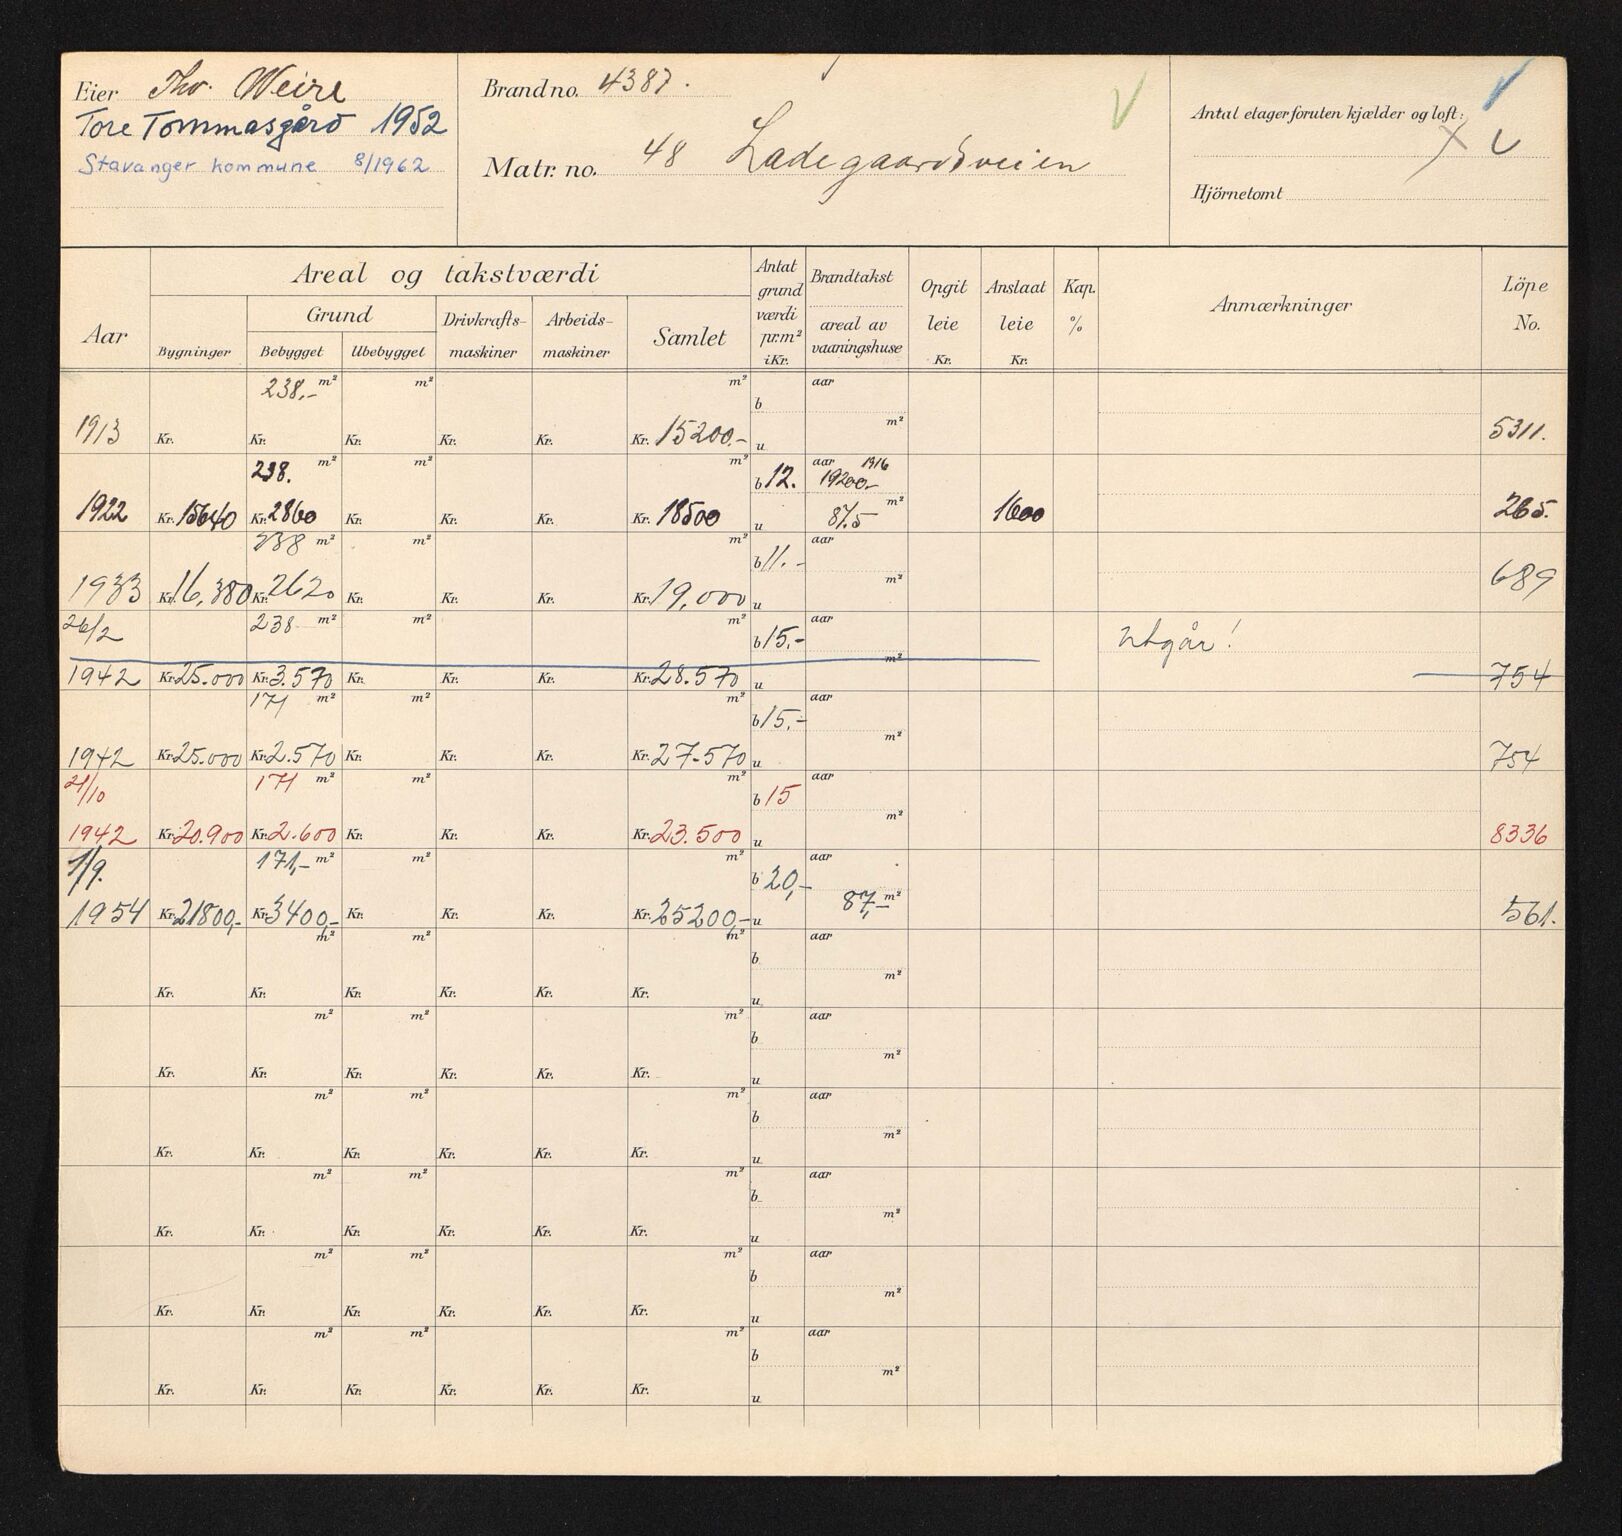 Eier Thv. Weire
Tore Tommasgård 1952
Stavanger kommune 8/1962
Brandno. 4387.
Matr. no. 48 Ladegaardsveien
Antal etager foruten kjælder og loft:
Hjörnetomt
Aar
Areal og takstværdi
Bygninger
Grund
Bebygget Ubebygget
Drivkrafts-maskiner
Arbeids-maskiner
Samlet
Antat grund værdi pr.m² i Kr.
Brandtakst
areal av vaaningshuse
Opgit leie Kr.
Anslaat leie Kr.
Kap. %
Anmærkninger
Löpe No.
238,- m² m² m² b aar
1913 Kr. Kr. Kr. Kr. Kr. Kr. 15200.- u m² 5311.
238. m² m² m² b 12. aar 1916 19200.-
1922 Kr. 15640 Kr. 2860 Kr. Kr. Kr. Kr. 18500 u 87.5 m² 1600 265.
238 m² m² m² b 11.- aar
1933 Kr. 16,380 Kr. 2620 Kr. Kr. Kr. Kr. 19,000 u m² 689
26/2 238 m² m² m² b 15,- aar Utgår!
1942 Kr. 25.000 Kr. 3.570 Kr. Kr. Kr. Kr. 28.570 u m² 754
171 m² m² m² b 15,- aar
1942 Kr. 25.000 Kr. 2.570 Kr. Kr. Kr. Kr. 27.570 u m² 754
21/10 171 m² m² m² b 15 aar
1942 Kr. 20.900 Kr. 2.600 Kr. Kr. Kr. Kr. 23.500 u m² 8336
1/9. 171,- m² m² m² b 20,- aar
1954 Kr. 21800,- Kr. 3400,- Kr. Kr. Kr. Kr. 25200,- u 87,- m² 561.
m² m² m² b aar
Kr. Kr. Kr. Kr. Kr. Kr. u m²
m² m² m² b aar
Kr. Kr. Kr. Kr. Kr. Kr. u m²
m² m² m² b aar
Kr. Kr. Kr. Kr. Kr. Kr. u m²
m² m² m² b aar
Kr. Kr. Kr. Kr. Kr. Kr. u m²
m² m² m² b aar
Kr. Kr. Kr. Kr. Kr. Kr. u m²
m² m² m² b aar
Kr. Kr. Kr. Kr. Kr. Kr. u m²